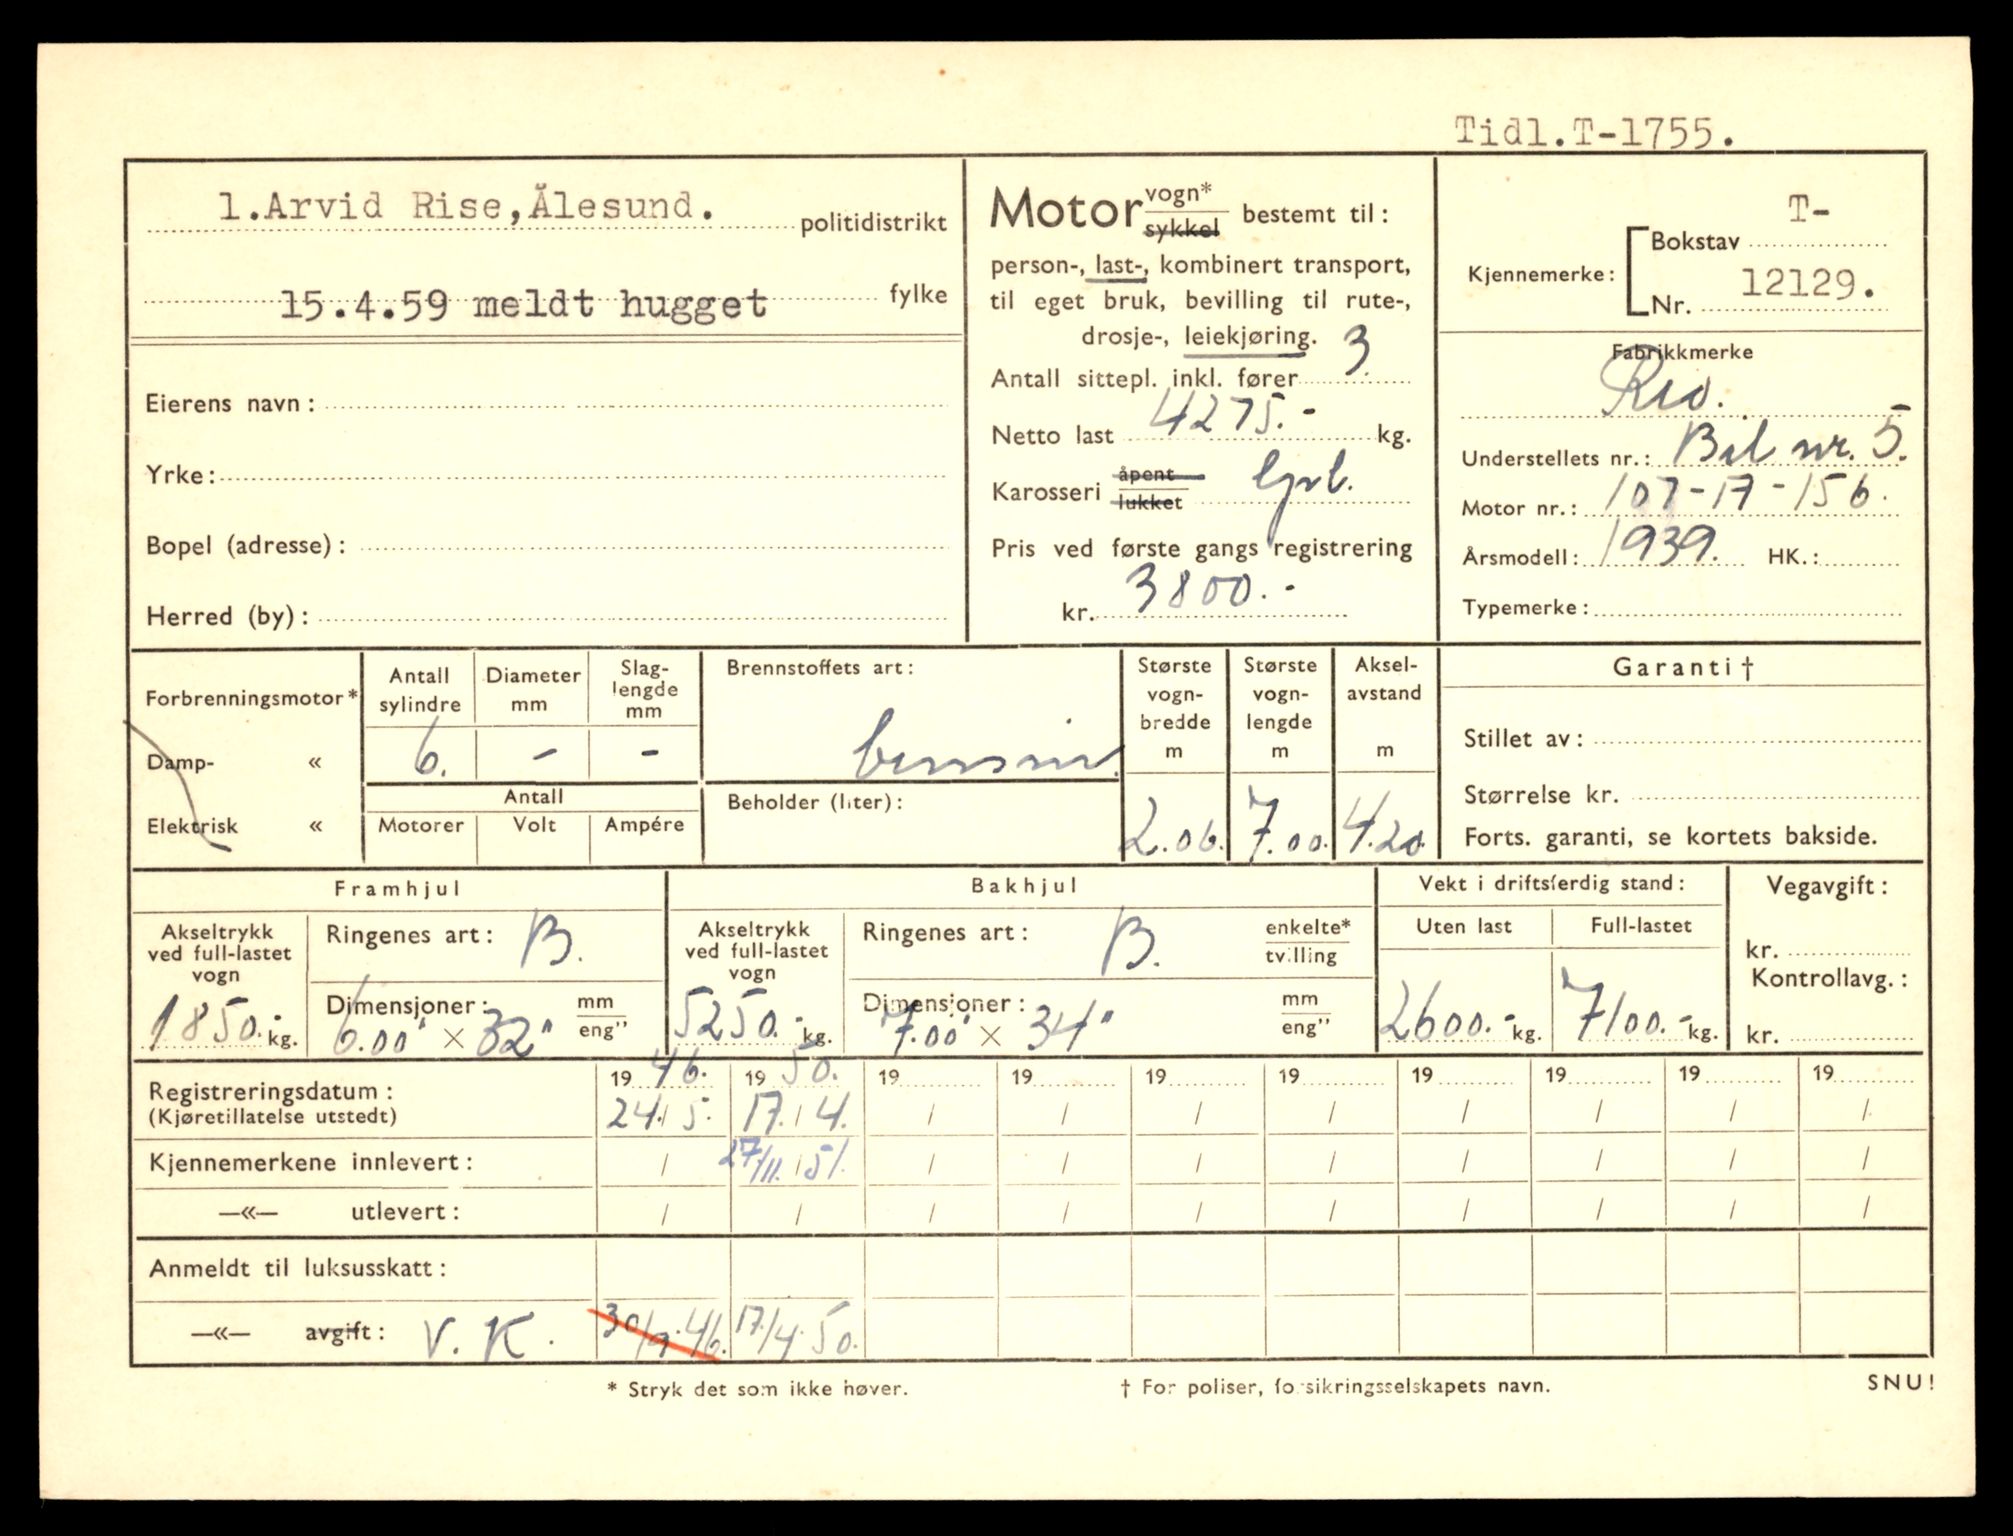 Tidl.T-1755.
1.Arvid Rise,Ålesund. politidistrikt
15.4.59 meldt hugget fylke
Eierens navn:
Yrke:
Bopel (adresse):
Herred (by):
Motor vogn* sykkel bestemt til:
person-, last-, kombinert transport,
til eget bruk, bevilling til rute-,
drosje-, leiekjøring.
Antall sittepl. inkl. fører 3
Netto last 4275.- kg.
Karosseri åpent lukket
Pris ved første gangs registrering
kr. 3800.-
Kjennemerke: Bokstav T-
Nr. 12129.
Fabrikkmerke
Reo.
Understellets nr.: Bil nr. 5.
Motor nr.: 107-17-156.
Årsmodell: 1939. HK.:
Typemerke:
Forbrenningsmotor*
Damp- «
Elektrisk «
Antall sylindre
6.
Diameter mm
-
Slag-lengde mm
-
Antall
Motorer Volt Ampére
Brennstoffets art:
bensin.
Beholder (liter):
Største vogn-bredde m
2.06.
Største vogn-lengde m
7.00.
Aksel-avstand m
4.20
Garanti †
Stillet av:
Størrelse kr.
Forts. garanti, se kortets bakside.
Framhjul
Akseltrykk ved full-lastet vogn
1850.- kg.
Ringenes art: B.
Dimensjoner: mm eng”
6.00" × 32"
Bakhjul
Akseltrykk ved full-lastet vogn
5250.- kg.
Ringenes art: B. enkelte* tvilling
Dimensjoner: mm eng”
7.00" × 34"
Vekt i driftsferdig stand:
Uten last Full-lastet
2600.- kg. 7100.- kg.
Vegavgift:
kr.
Kontrollavg.:
kr.
1946. 1950. 19 19 19 19 19 19 19 19
Registreringsdatum: 24/5. 17./4. / / / / / / / /
(Kjøretillatelse utstedt)
Kjennemerkene innlevert: / 27/11. / 51. / / / / / / / /
—«— utlevert: / / / / / / / / / /
Anmeldt til luksusskatt:
—«— avgift: V. K. 30/9.46. 17./4.50.
* Stryk det som ikke høver.
† For poliser, forsikringsselskapets navn.
SNU!